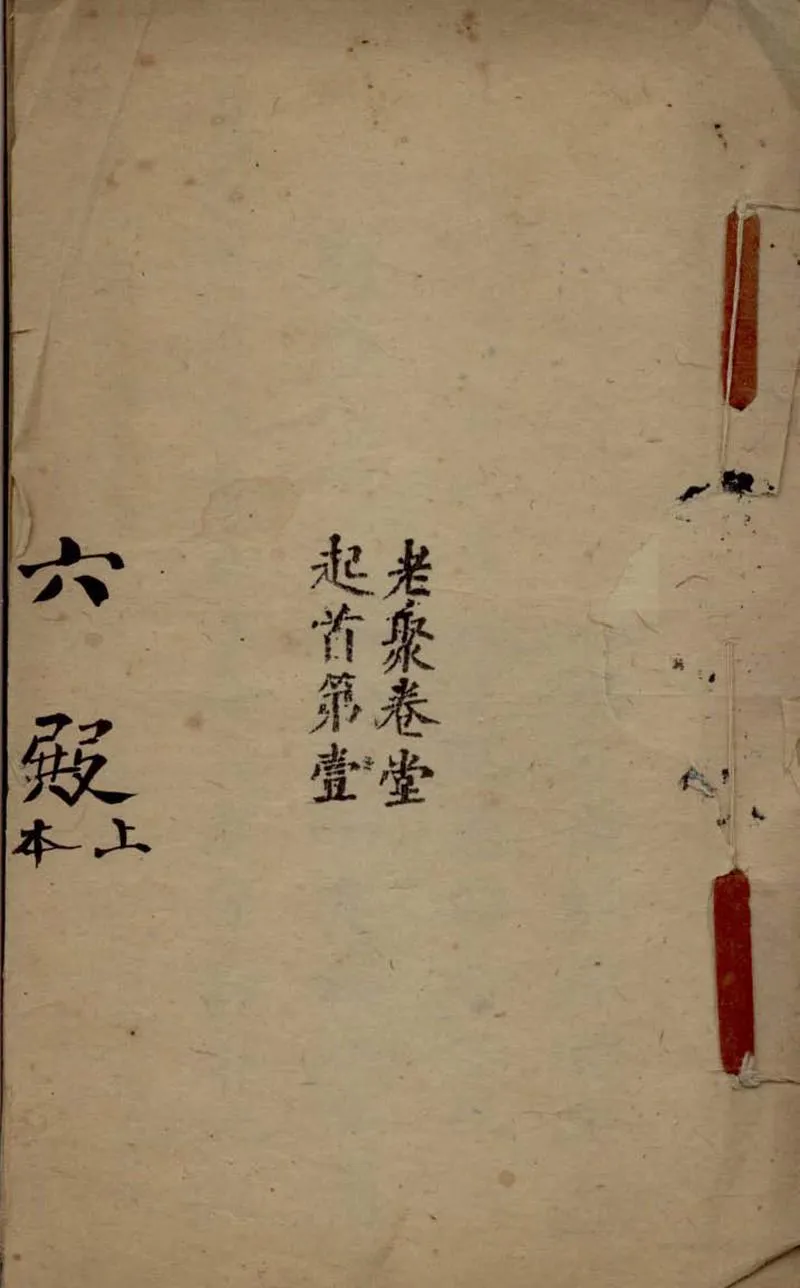 老聚卷堂
起首第壹
六殿
上本